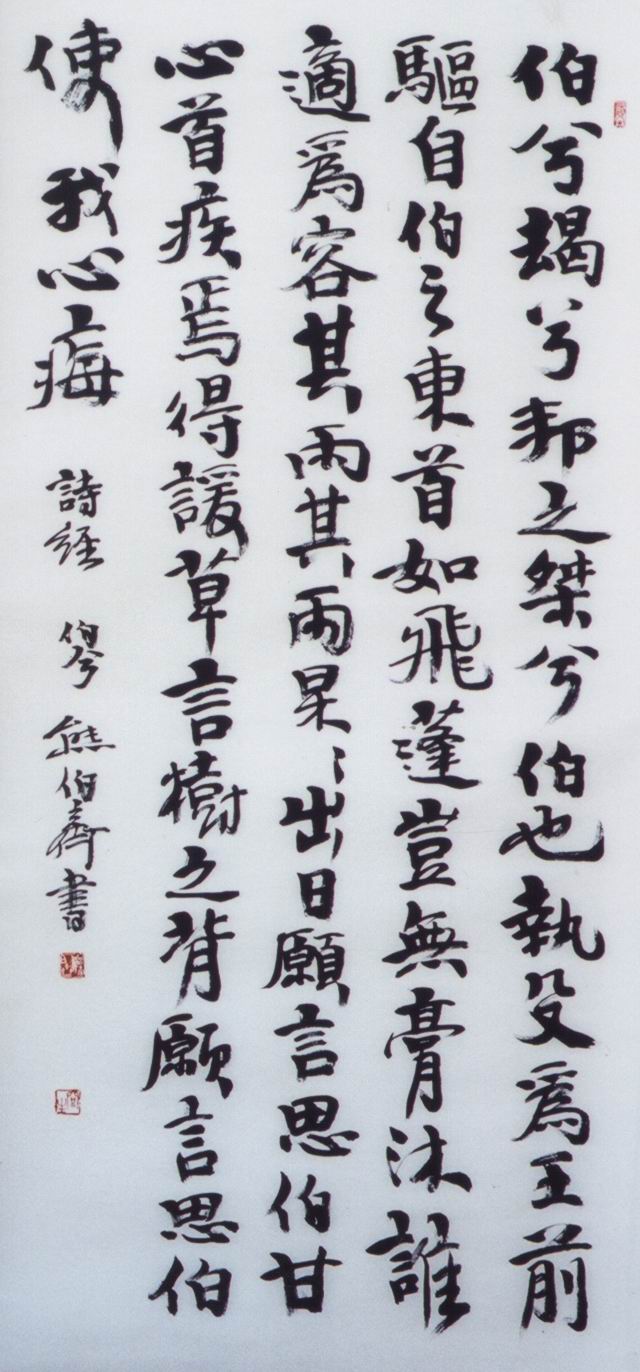 伯兮朅兮邦之桀兮伯也執殳爲王前
驅自伯之東首如飛蓬豈無膏沐誰
適爲容其雨其雨杲〻出日願言思伯甘
心首疾焉得諼草言樹之背願言思伯
使我心痗 詩經 伯兮 熊伯齊書